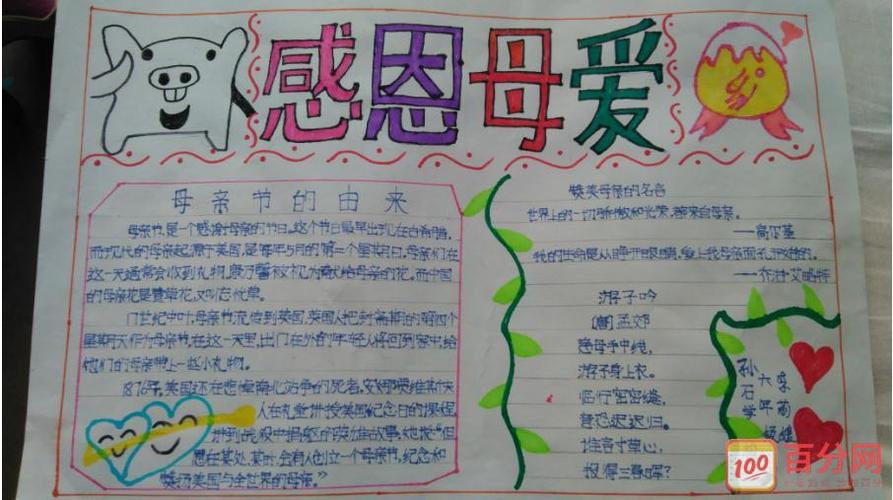 感恩母爱
母亲节的由来
母亲节,是一个感谢母亲的节日。这个节日最早出现在古希腊,
而现代的母亲起源于美国,是每年5月的第二个星期日,母亲们在
这一天通常会收到礼物,康乃馨被视为献给母亲的花。而中国
的母亲花是萱草花,又叫忘忧草。
17世纪中叶,母亲节流传到英国,英国人把封斋期的第四个
星期天作为母亲节。在这一天里,出门在外的年轻人将回到家中,给
他们的母亲带上一些小礼物。
1876年,美国还在悲悼南北战争的死者,安娜·
人在礼堂讲授美国纪念日的课程,
讲到战役中捐躯的英雄故事,她说“但
愿在某处,某时,会有人创立一个母亲节,纪念和
赞扬美国与全世界的母亲。”
赞美母亲的名言
世界上的一切骄傲和光荣,都来自母亲。
——高尔基
我的生命是从睁开眼睛,爱上我母亲面孔开始的。
——乔治·艾略特
游子吟
(唐)孟郊
慈母手中线,
游子身上衣。
临行密密缝,
意恐迟迟归。
谁言寸草心,
报得三春晖?
石学
六年
100
百分网